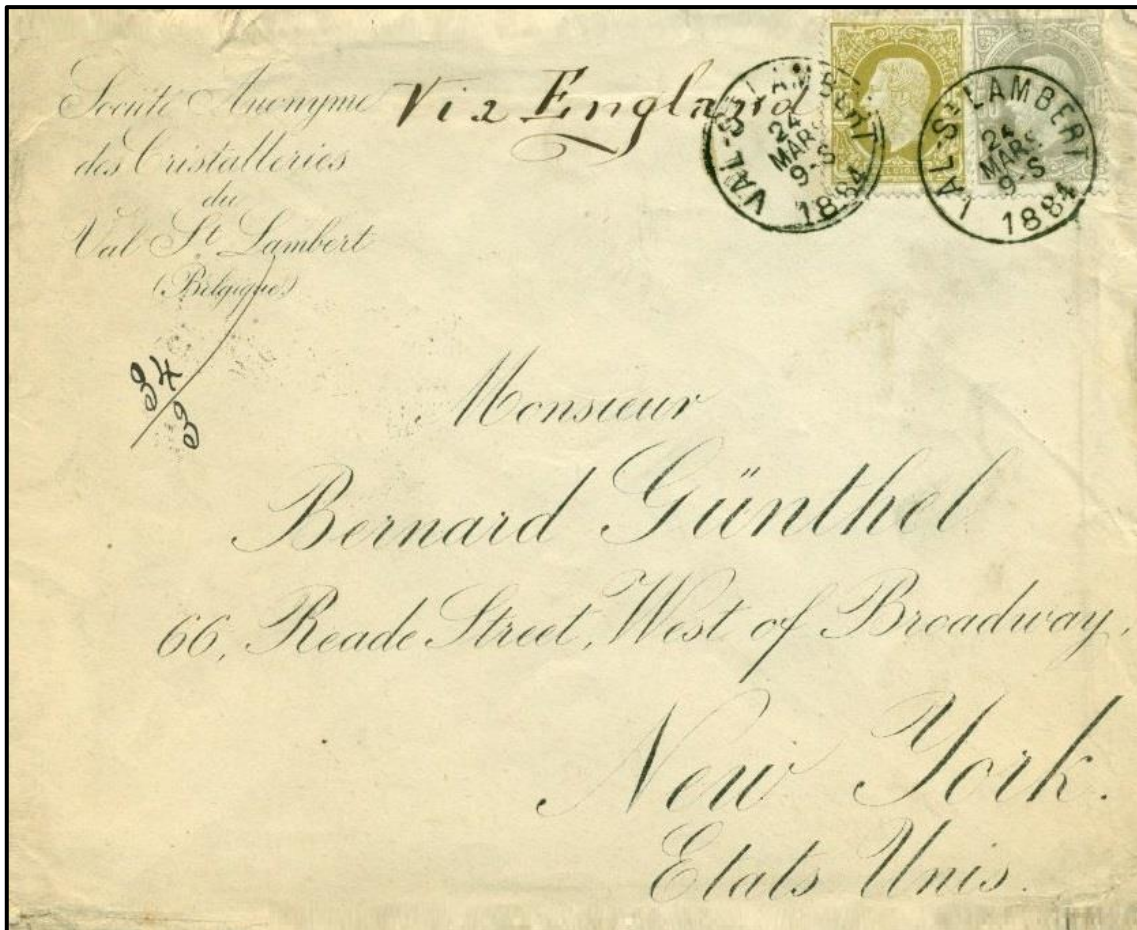 Société Anonyme
des Cristalleries
du
Val St Lambert
(Belgique)
Via England
VAL-ST LAMBERT
24
MARS
9-S
1884
VAL-ST LAMBERT
24
MARS
9-S
1884
34
3
Monsieur
Bernard Günthel
66, Reade Street, West of Broadway,
New York.
Etats Unis.